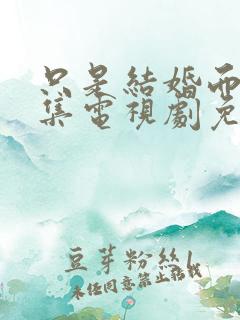 只是結婚而
集電視劇免
豆芽粉絲l
未经同意禁止转载